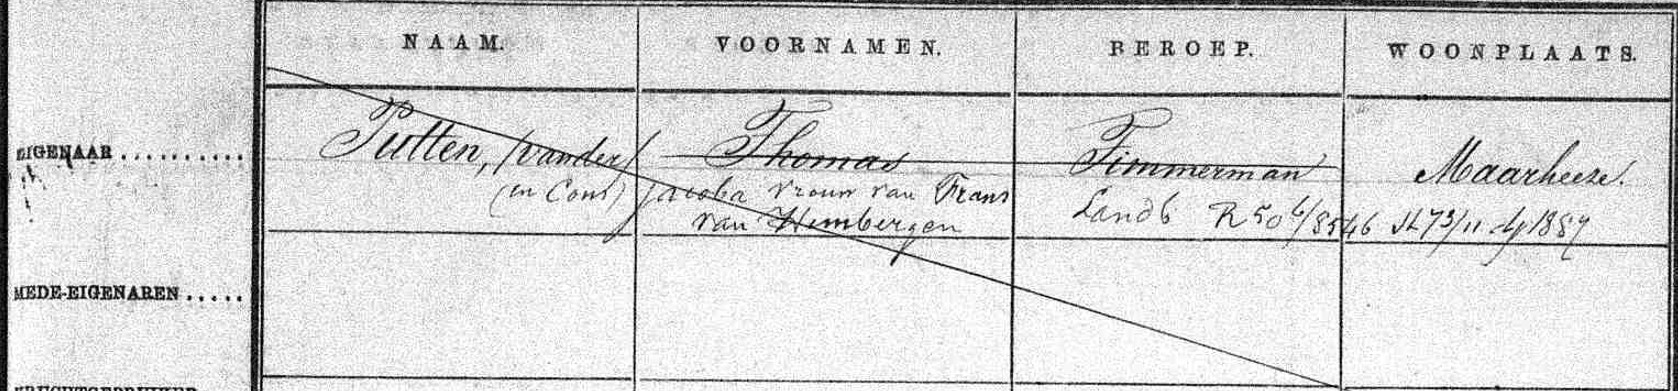 NAAM. VOORNAMEN. BEROEP. WOONPLAATS.
EIGENAAR .......... Putten, (van der) Thomas Timmerman Maarheeze.
(en Cons) Jacoba vrouw van Frans Landb R 50 6/8546 St 73/11 dj 1889
van Hembergen
MEDE-EIGENAREN .....